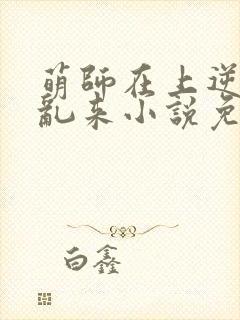 萌師在上逆
亂來小說免
白鑫